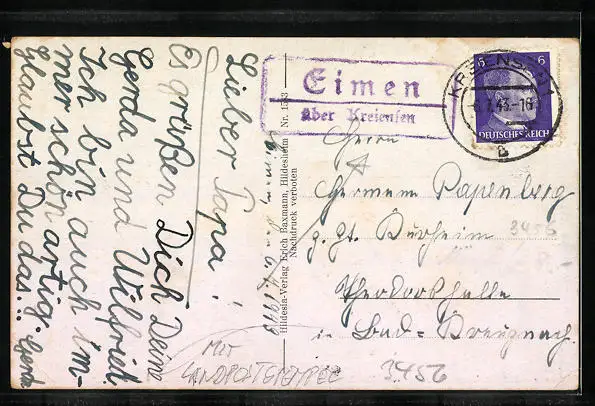 Eimen
über Kreiensen
KREIENSEN 1
43-16
a
6
6
DEUTSCHES REICH
Lieber Papa!
Es grüßen Dich Deine
Gerda und Wilfrid.
Ich bin auch im-
mer schön artig.
Glaubst Du das?.. Gerda
Hildesia-Verlag Erich Baxmann, Hildesheim Nr. 1533
Nachdruck verboten
Herrn
Hermann Papenberg
z. Zt. Burheim
Theodorshalle
in Bad-Kreuznach.
3456
MIT
LANDPOSTSTEMPEL
3456
8,-